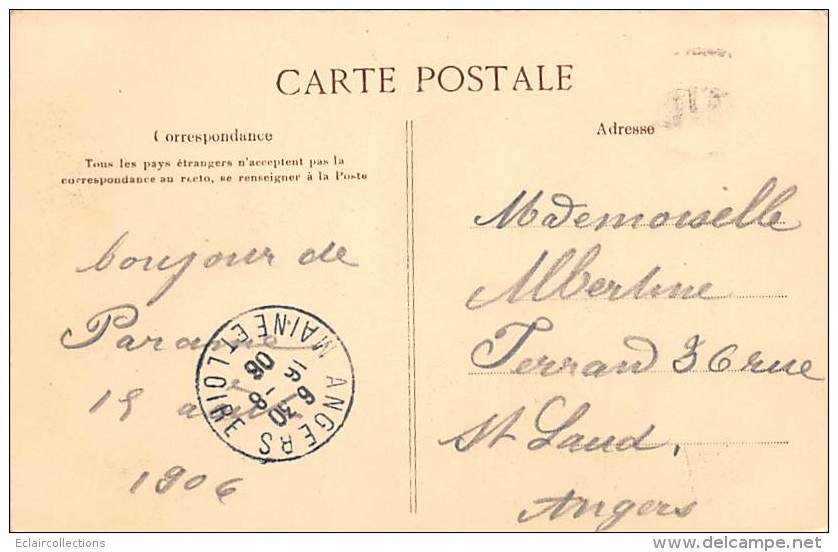 CARTE POSTALE
Correspondance
Tous les pays étrangers n'acceptent pas la
correspondance au recto, se renseigner à la Poste
bonjour de
Paramé
15 août
1906
Adresse
Mademoiselle
Albertine
Ferrand 36 rue
St Laud,
Angers
ANGERS MAINE ET LOIRE
6 30
16 -8
06
Eclaircollections
www.delcampe.net